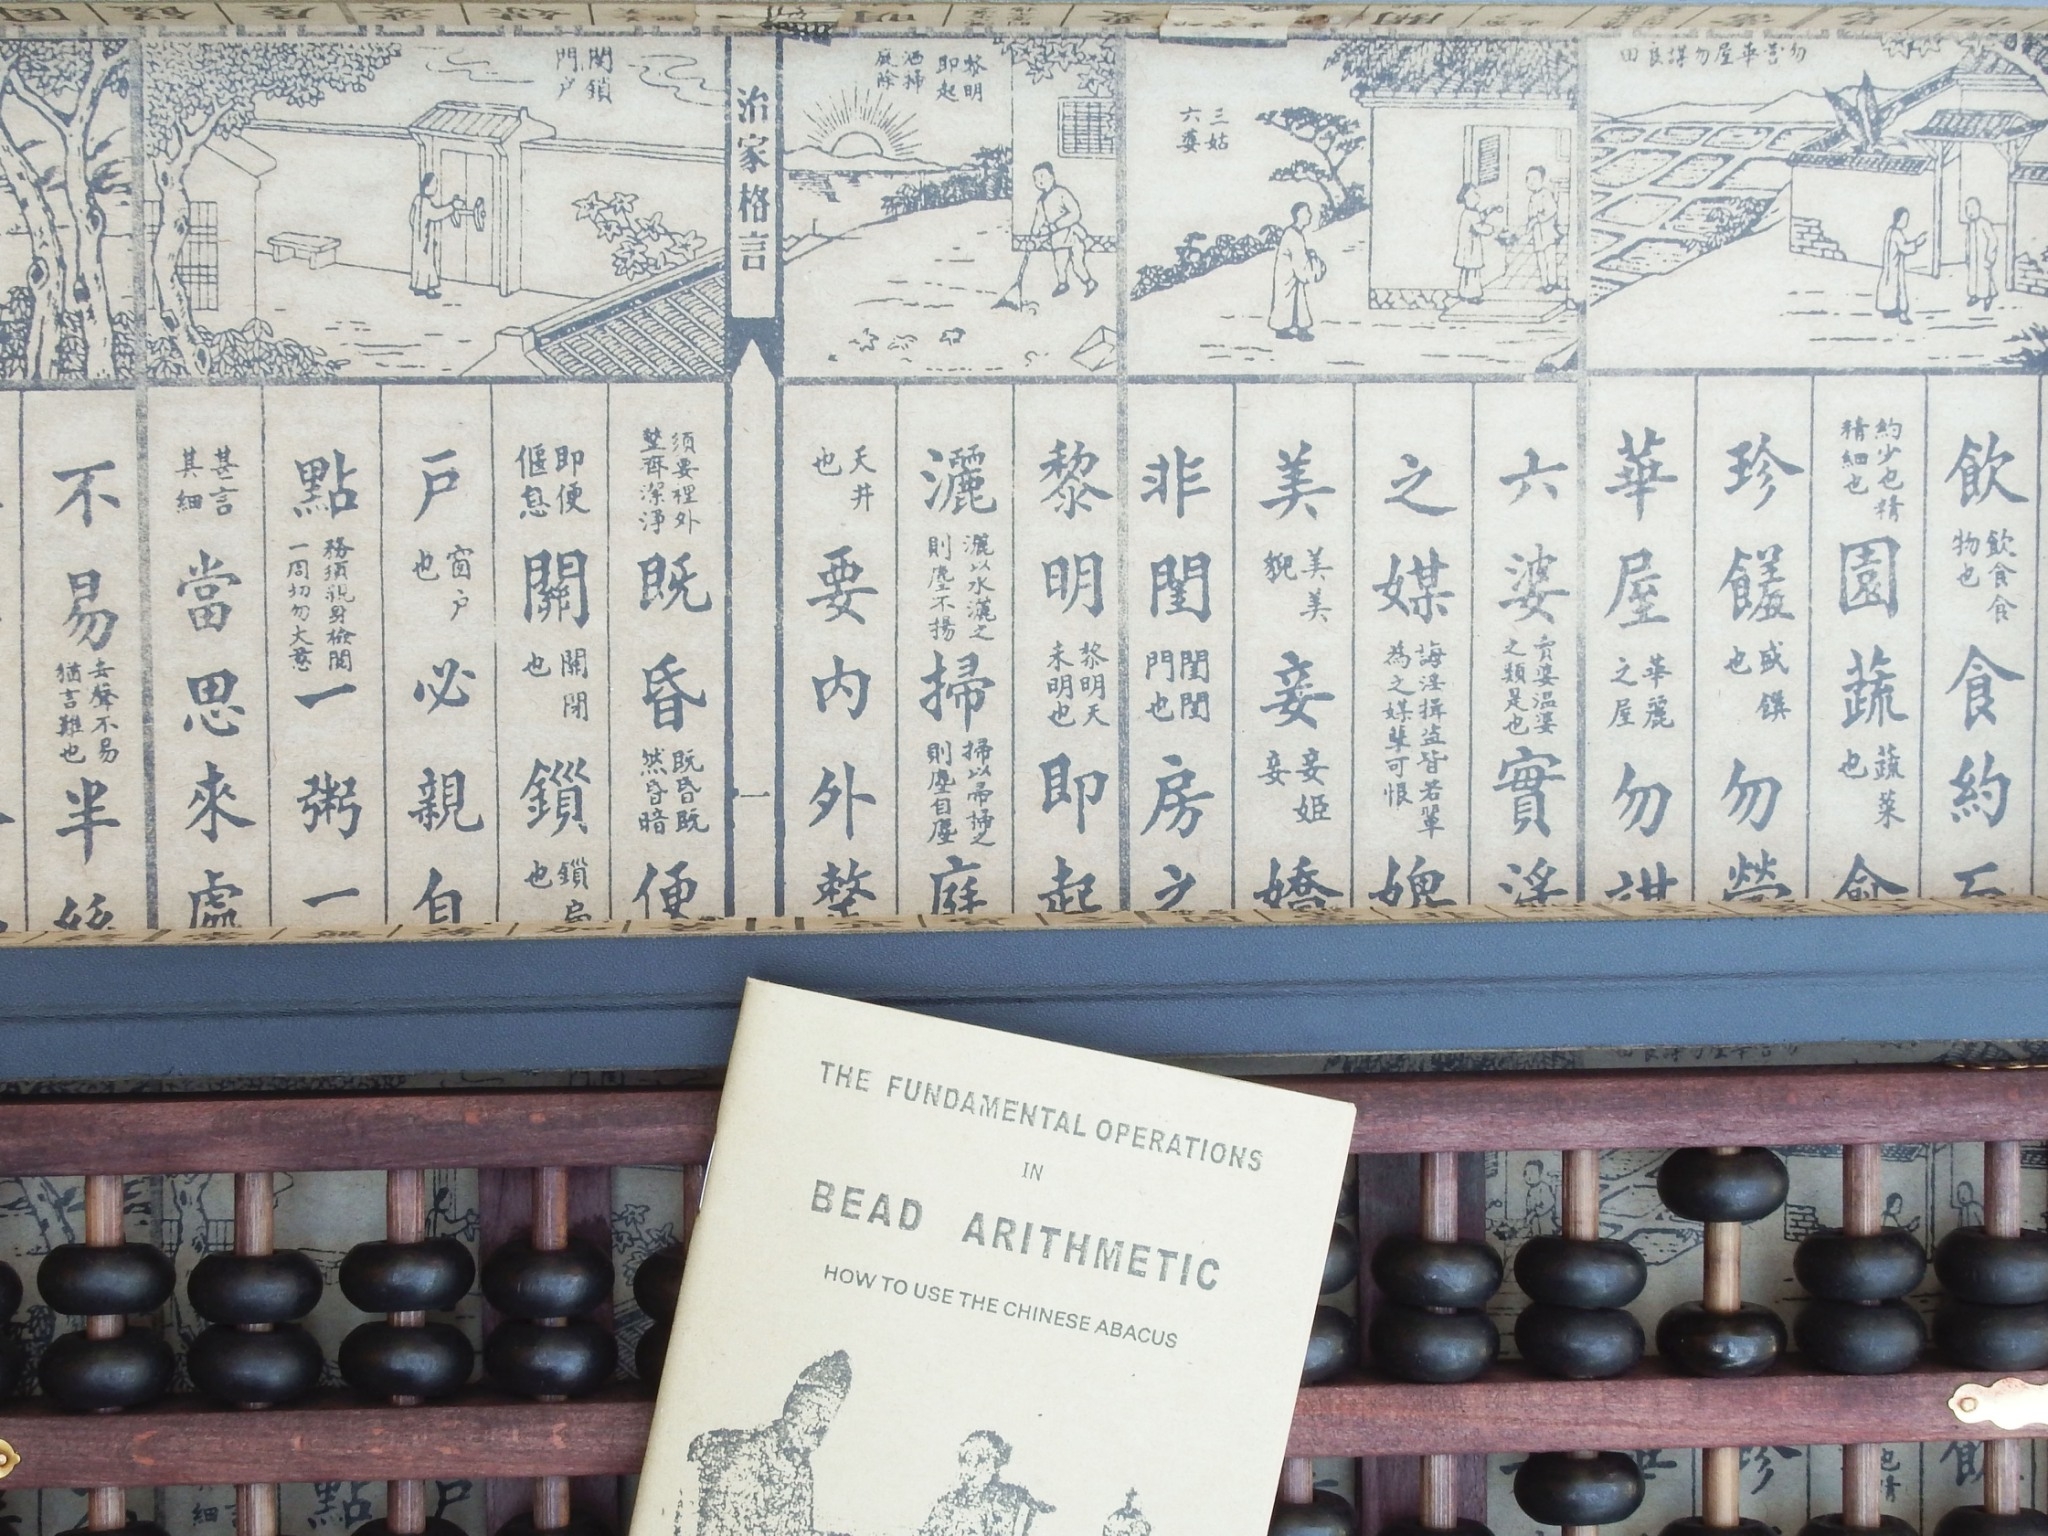 勿營華屋勿謀良田
三姑
六婆
黎明
即起
洒掃
庭除
治家格言
關鎖
門戶
飲飲食食物也食約
約少也精精細也園蔬蔬菜也
珍饈盛饌也勿營
華屋華麗之屋勿謀
六婆賣婆溫婆之類是也實淫
之媒誨淫揖盜皆若輩為之媒孽可恨
美美美貌妾妾姬妾嬌
非閨閨閨門也房之
黎明黎明天未明也即起
灑灑以水灑之則塵不揚掃掃以帚掃之則塵自塵庭
天井也要內外整
一
須要裡外整齊潔淨既昏既昏既然昏暗便
即便偃息關關閉也鎖鎖扃也
戶窗戶也必親自
點務須親身檢閱一周切勿大意一粥一
甚言其細當思來處
不易去聲不易猶言難也半絲
THE FUNDAMENTAL OPERATIONS
IN
BEAD ARITHMETIC
HOW TO USE THE CHINESE ABACUS